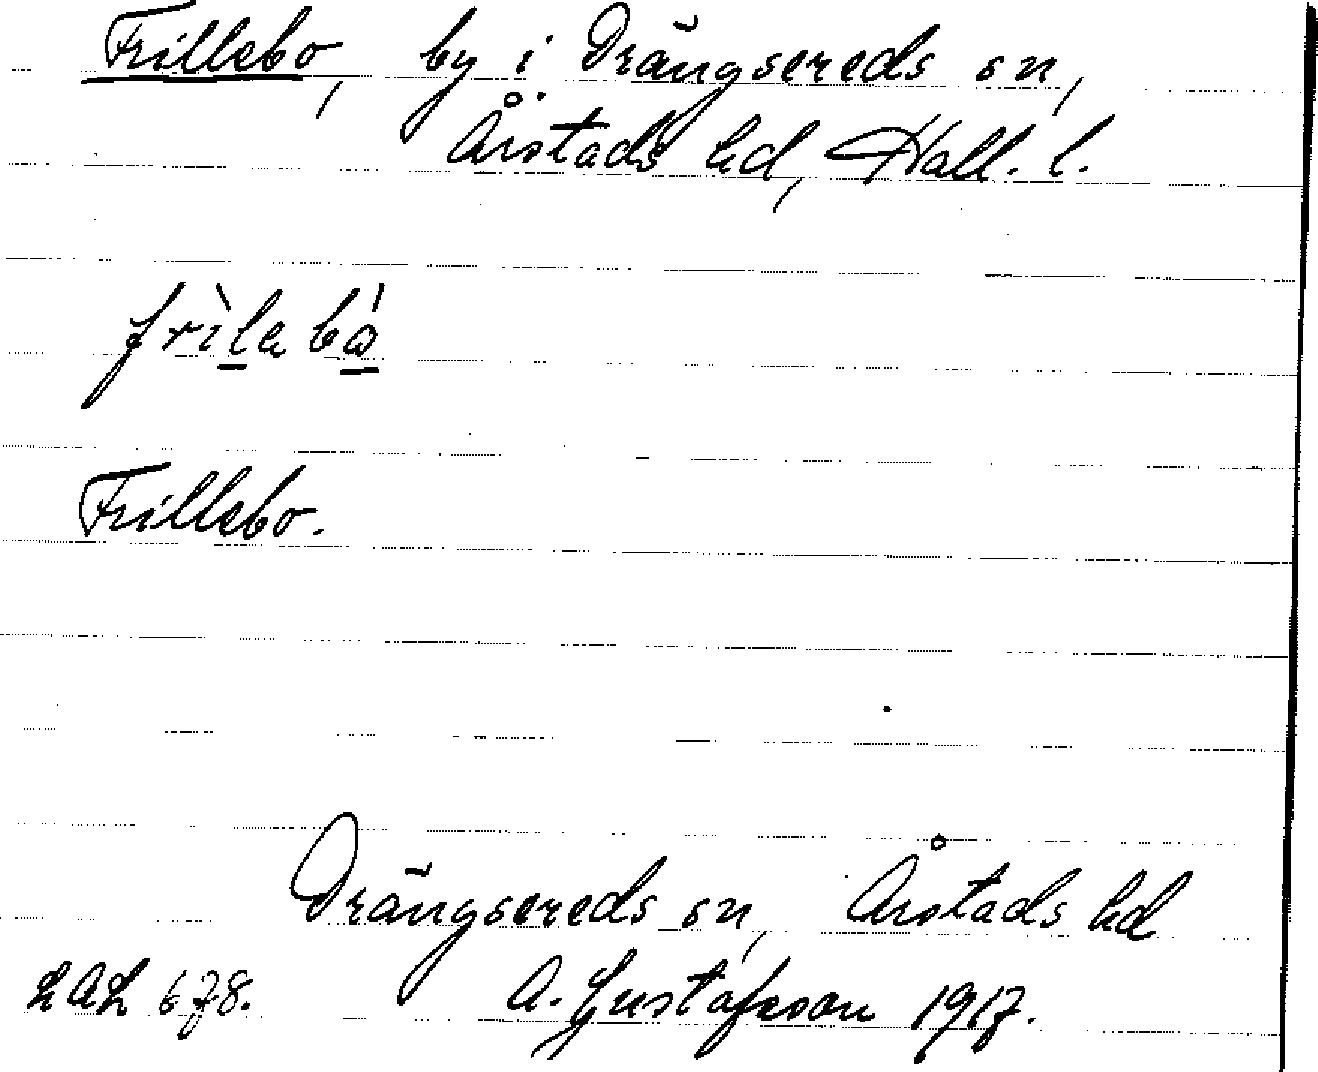 Frillebo, by i Drängsereds sn,
Årstads hd, Hall. l.
frìlabó
Frillebo.
Drängsereds sn, Årstads hd
LAL 678. A. Gustafsson 1917.